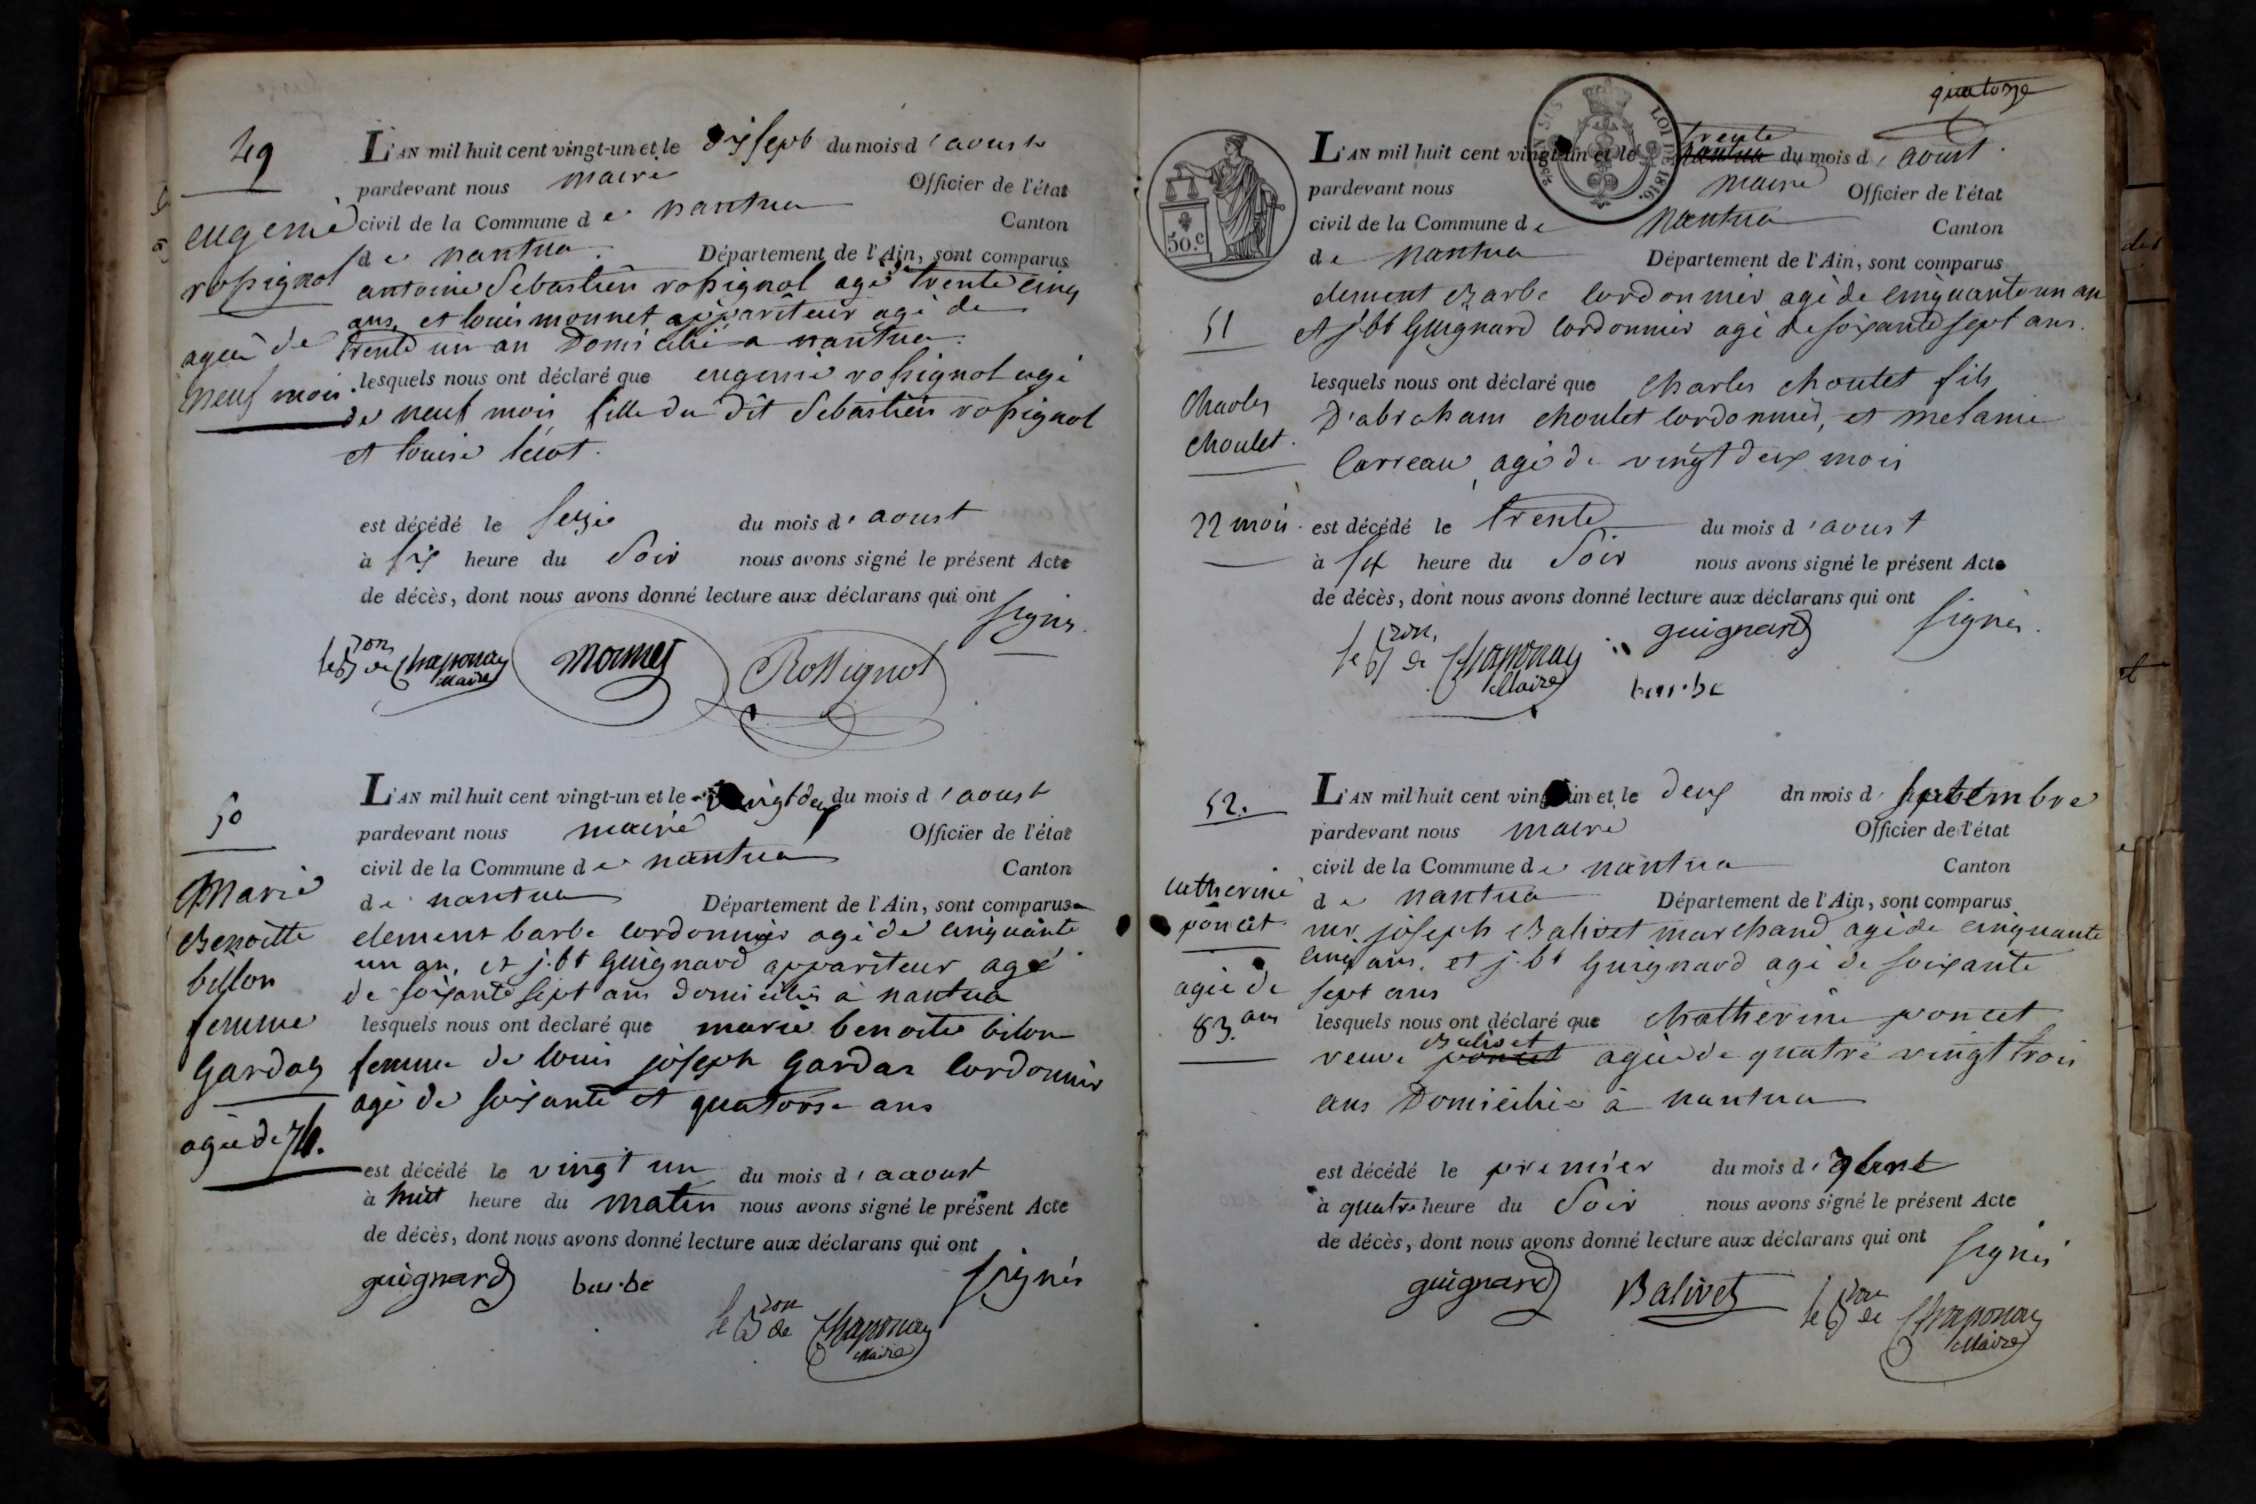 49
L'AN mil huit cent vingt-un et le dix sept du mois d'aoust
pardevant nous maire Officier de l'état
civil de la Commune de nantua Canton
de nantua Département de l'Ain, sont comparus
antoine Sebastien rossignol agé trente cinq
ans, et louis monnet appariteur agé de
trente un an Domicilié a nantua.
lesquels nous ont déclaré que eugenie rossignol agé
de neuf mois fille du dit Sebastien rossignol
et louise
eugenie
rossignol
ageé de
neuf mois.
est décédé le seize du mois d'aoust
à six heure du Soir nous avons signé le présent Acte
de décès, dont nous avons donné lecture aux déclarans qui ont
signes.
le Bon de Chaponay
Maire
Monnet
Rossignol
50
L'AN mil huit cent vingt-un et le vingt deux du mois d'aoust
pardevant nous maire Officier de l'état
civil de la Commune de nantua Canton
de nantua Département de l'Ain, sont comparus
clement barbe cordonnier agé de cinquante
un an, et j. bt Guignard appariteur agé
de soixante sept ans domiciliés à nantua
lesquels nous ont declaré que marie benoite bilon
femme de louis joseph Gardaz cordonnier
agé de soixante et quatorse ans
Marie
Benoitte
billon
femme
Gardaz
agée de 74.
est décédé le vingt un du mois d'aaoust
à huit heure du matin nous avons signé le présent Acte
de décès, dont nous avons donné lecture aux déclarans qui ont
signés
guignard
barbe
le Bon de Chaponay
Maire
quatorze
50.c
LOI DE 1816.
L'AN mil huit cent vingt-un et le trente nantua du mois d'aoust.
pardevant nous maire Officier de l'état
civil de la Commune de Nantua Canton
de nantua Département de l'Ain, sont comparus
clement Barbe cordonnier agé de cinquante un an
et j bt Guignard cordonnier agé de soixante sept ans.
51
lesquels nous ont déclaré que Charles choulet fils
D'abraham choulet cordonnier, et melanie
Carreau, agé de vingt deux mois
Charles
choulet.
22 mois.
est décédé le trente du mois d'aoust
à six heure du Soir nous avons signé le présent Acte
de décès, dont nous avons donné lecture aux déclarans qui ont
signés.
le Bon de Chaponay
Maire
guignard
barbe
52.
L'AN mil huit cent vingt-un et le deux du mois de septembre
pardevant nous maire Officier de l'état
civil de la Commune de nantua Canton
de nantua Département de l'Ain, sont comparus
mr. joseph Balivet marchand agé de cinquante
cinq ans, et j. bt Guignard agé de soixante
sept ans
lesquels nous ont déclaré que Chatherine poncet
veuve poncet Balivet agée de quatre vingt trois
ans Domiciliée à nantua
catherine
poncet
agée de
83. ans
est décédé le premier du mois de 7bre
à quatre heure du Soir nous avons signé le présent Acte
de décès, dont nous avons donné lecture aux déclarans qui ont
signés
guignard
Balivet
le Bon de Chaponay
Maire